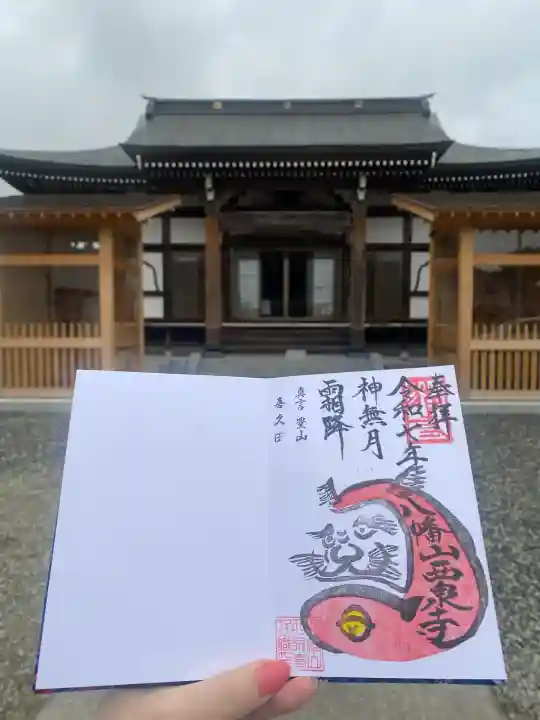 奉拝
令和七年
八幡山西泉寺
神無月
霜降
真言 豊山
喜久田